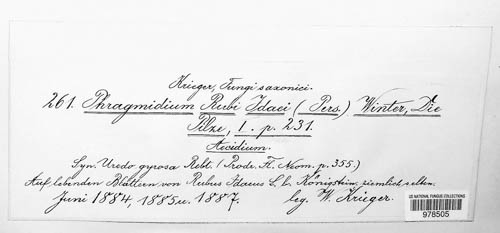 Krieger, Fungi saxonici.
261. Phragmidium Rubi Idaei (Pers.) Winter, Die
Pilze, 1. p. 231.
Aecidium.
Syn. Uredo gyrosa Rebt. (Prodr. Fl. Neom. p. 355.)
Auf lebenden Blättern von Rubus Idaeus L. b. Königstein, ziemlich selten.
Juni 1884, 1885 u. 1887. leg. W. Krieger.
US NATIONAL FUNGUS COLLECTIONS
978505